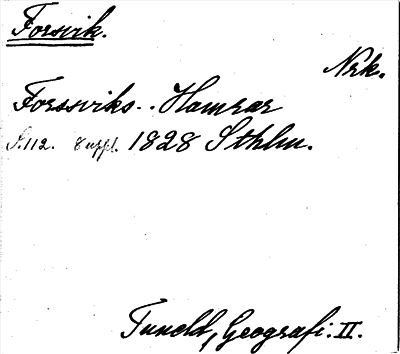 Forsvik.
Nrk.
Forssviks.. Hamrar
S.112. 8 uppl. 1828 Sthlm.
Tuneld, Geografi. II.